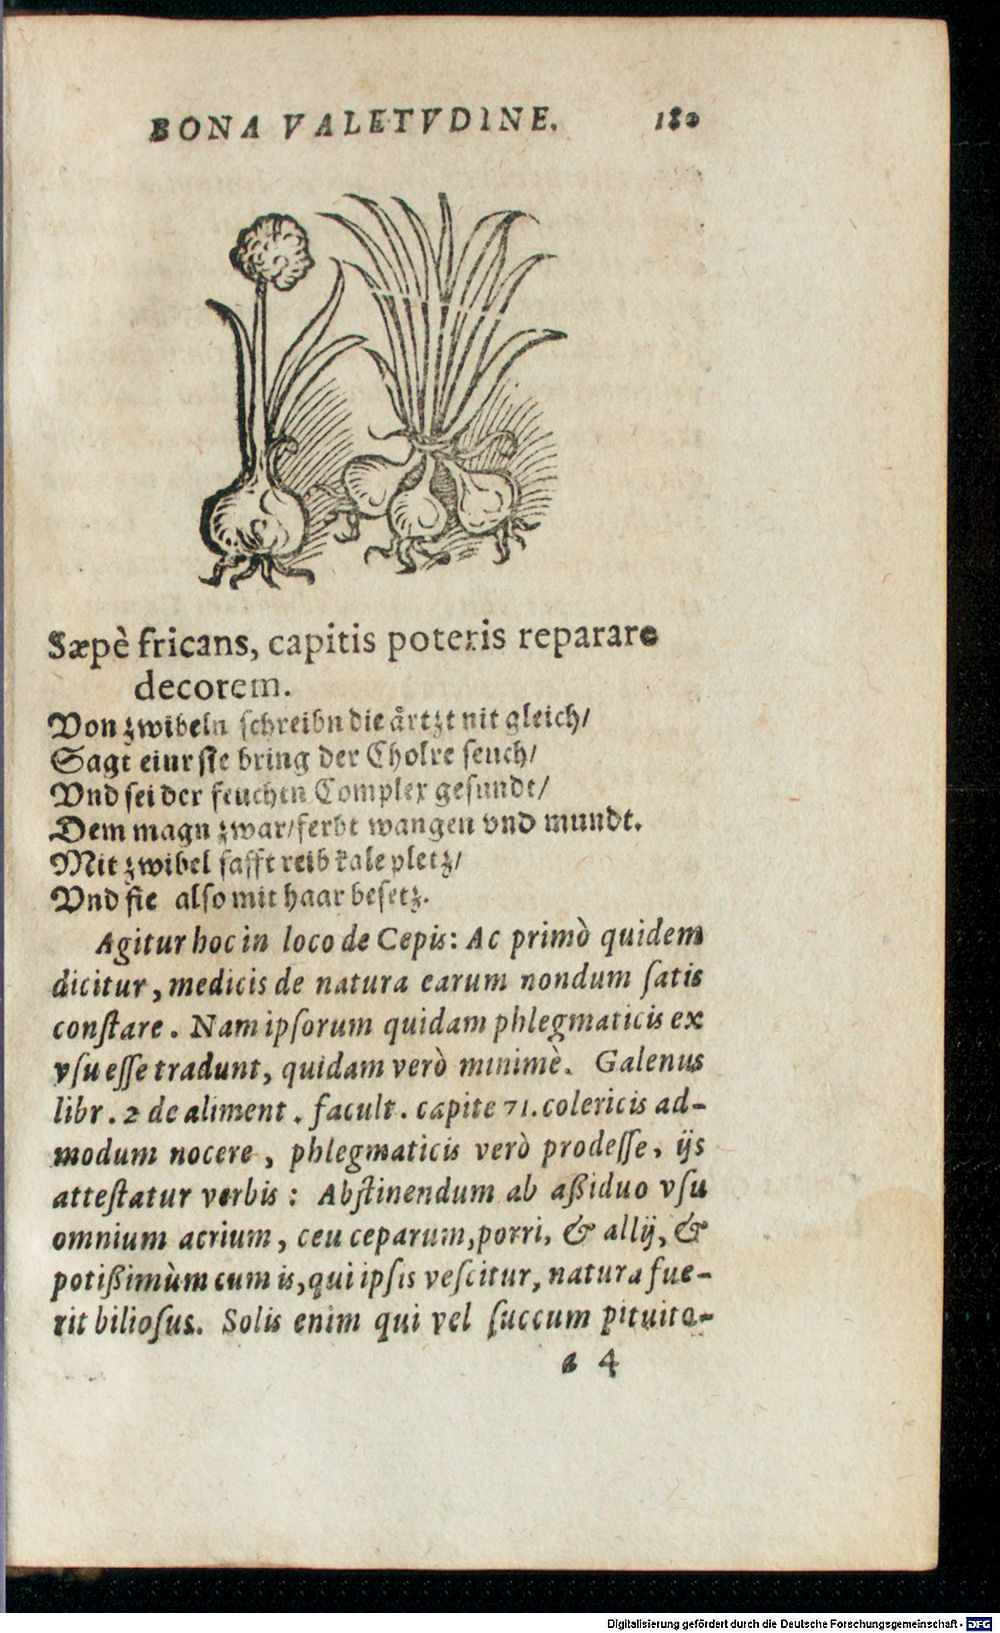 BONA VALETVDINE. 180
Sæpè fricans, capitis poteris reparare
decorem.
Von zwibeln schreibn die årtzt nit gleich/
Sagt einr sie bring der Cholre seuch/
Vnd sei der feuchtn Complex gesundt/
Dem magn zwar/ferbt wangen vnd mundt.
Mit zwibel safft reib kale pletz/
Vnd sie also mit haar besetz.
Agitur hoc in loco de Cepis: Ac primò quidem
dicitur, medicis de natura earum nondum ſatis
conſtare. Nam ipſorum quidam phlegmaticis ex
vſu eſſe tradunt, quidam verò minimè. Galenus
libr. 2 de aliment. facult. capite 71. colericis ad-
modum nocere, phlegmaticis verò prodeſſe, ijs
atteſtatur verbis: Abſtinendum ab aßiduo vſu
omnium acrium, ceu ceparum, porri, & allij, &
potißimùm cum is, qui ipſis veſcitur, natura fue-
rit bilioſus. Solis enim qui vel ſuccum pituito-
a 4
Digitalisierung gefördert durch die Deutsche Forschungsgemeinschaft - DFG